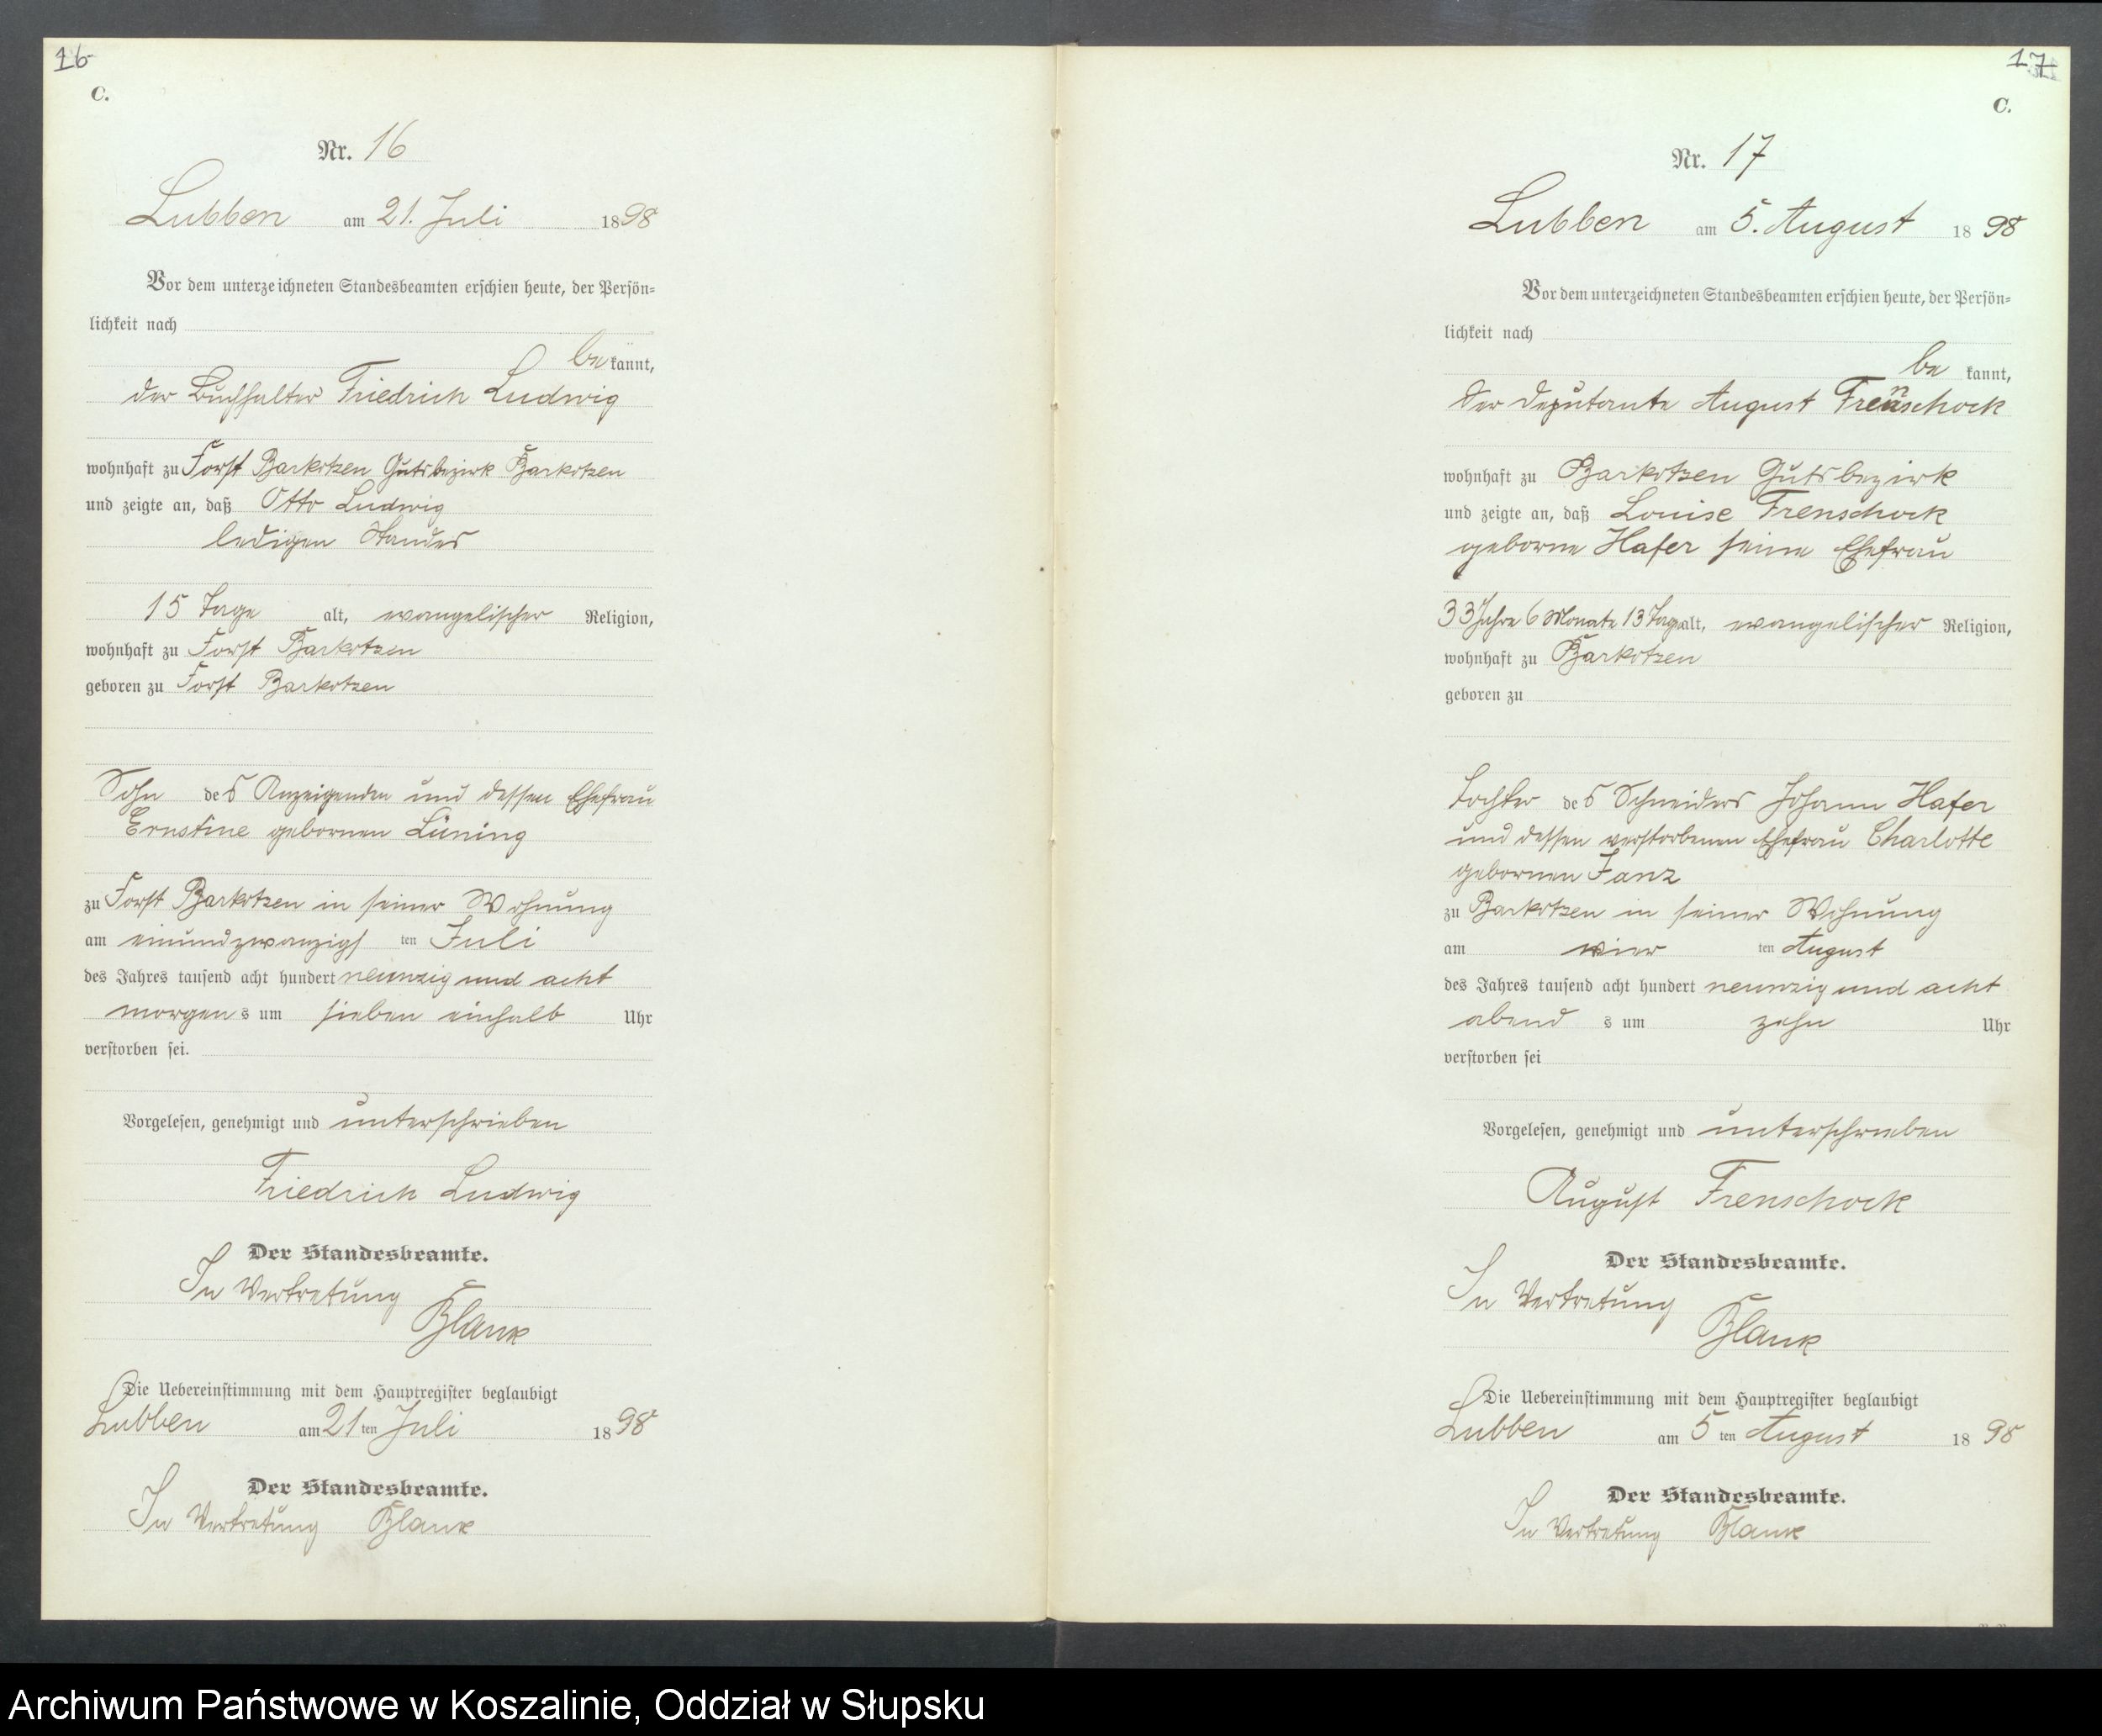 16
C.
Nr. 16
Lubben am 21. Juli 1898
Vor dem unterzeichneten Standesbeamten erschien heute, der Persön=
lichkeit nach
be kannt,
der Buchhalter Friedrich Ludwig
wohnhaft zu Forst Barkotzen Gutsbezirk Barkotzen
und zeigte an, daß Otto Ludwig
ledigen Standes
15 Tage alt, evangelischer Religion,
wohnhaft zu Forst Barkotzen
geboren zu Forst Barkotzen
Sohn des Anzeigenden und dessen Ehefrau
Ernstine gebornen Lüning
zu Forst Barkotzen in seiner Wohnung
am einundzwanzigs ten Juli
des Jahres tausend acht hundert neunzig und acht
morgens um sieben einhalb Uhr
verstorben sei.
Vorgelesen, genehmigt und unterschrieben
Friedrich Ludwig
Der Standesbeamte.
In Vertretung
Blank
Die Uebereinstimmung mit dem Hauptregister beglaubigt
Lubben am 21 ten Juli 1898
Der Standesbeamte.
In Vertretung Blank
17
C.
Nr. 17
Lubben am 5. August 1898
Vor dem unterzeichneten Standesbeamten erschien heute, der Persön=
lichkeit nach
be kannt,
der Deputante August Frenschock
wohnhaft zu Barkotzen Gutsbezirk
und zeigte an, daß Louise Frenschock
geborne Hafer seine Ehefrau
33 Jahre 6 Monate 13 Tage alt, evangelischer Religion,
wohnhaft zu Barkotzen
geboren zu
Tochter des Schneiders Johann Hafer
und dessen verstorbenen Ehefrau Charlotte
gebornen Janz
zu Barkotzen in seiner Wohnung
am vier ten August
des Jahres tausend acht hundert neunzig und acht
abend s um zehn Uhr
verstorben sei
Vorgelesen, genehmigt und unterschrieben
August Frenschock
Der Standesbeamte.
In Vertretung
Blank
Die Uebereinstimmung mit dem Hauptregister beglaubigt
Lubben am 5 ten August 1898
Der Standesbeamte.
In Vertretung Blank
Archiwum Państwowe w Koszalinie, Oddział w Słupsku